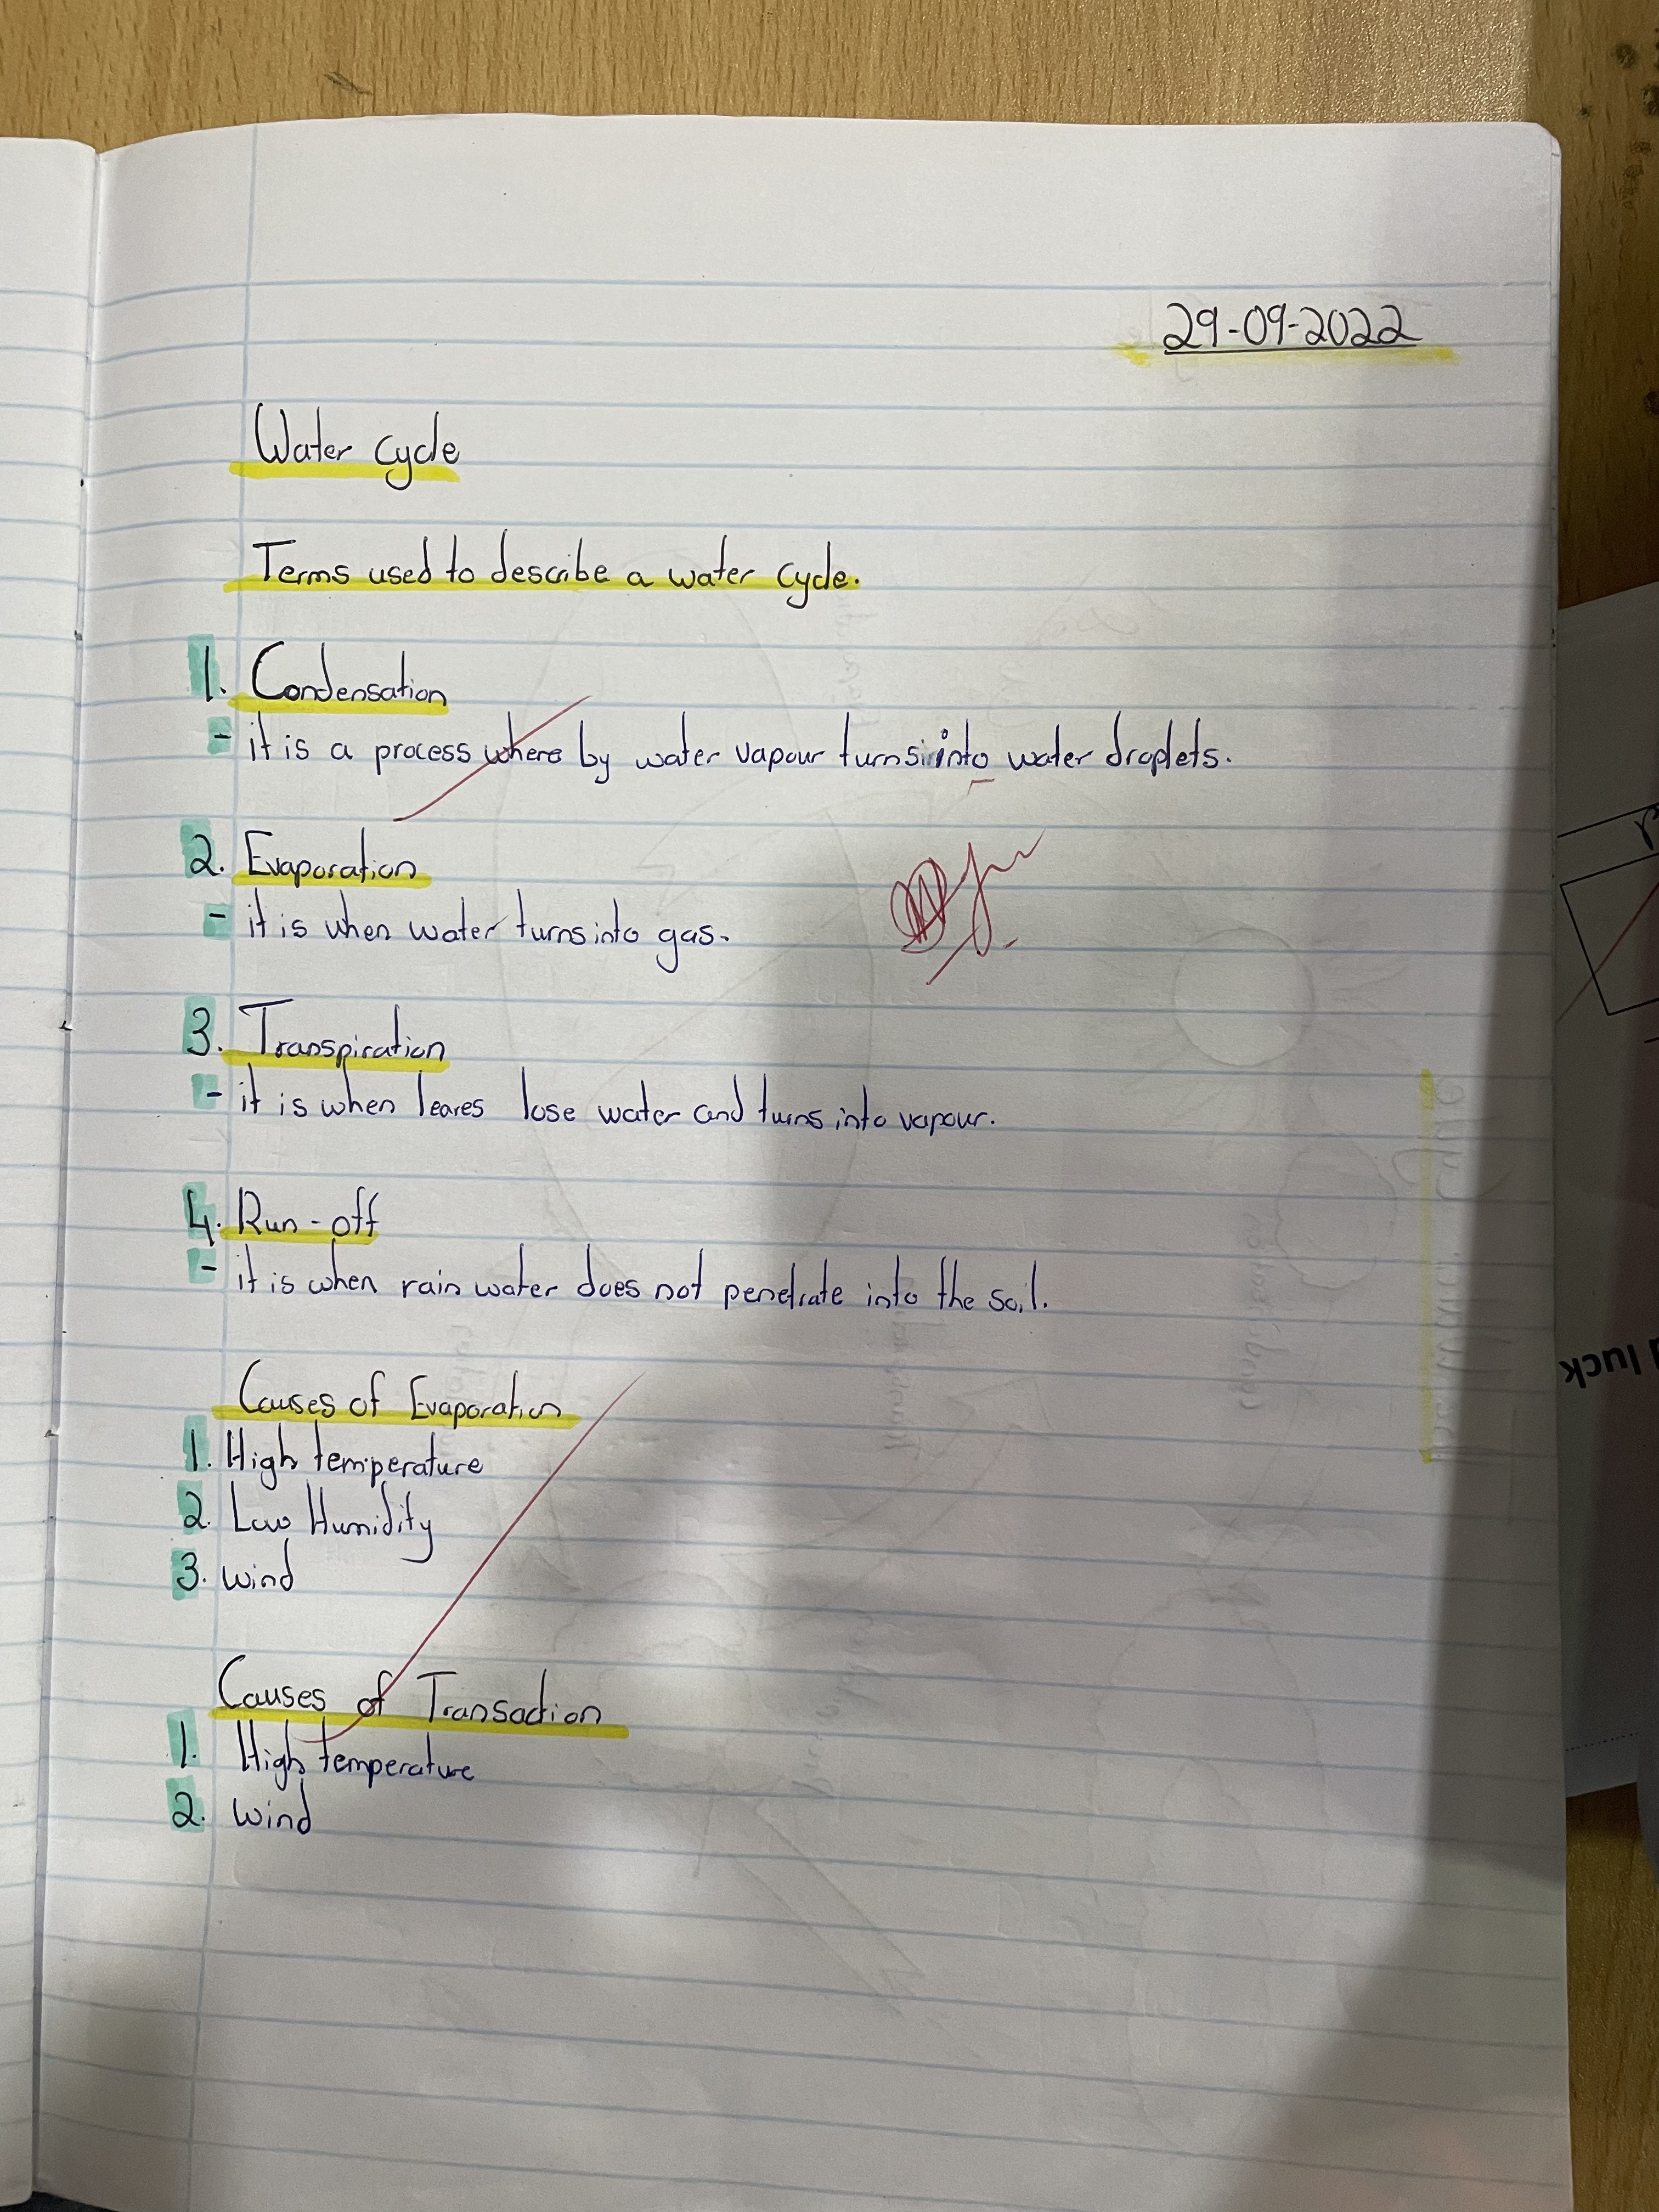 29-09-2022
Water cycle
Terms used to describe a water cycle.
1. Condensation
- it is a process where by water vapour turns into water droplets.
2. Evaporation
- it is when water turns into gas.
3. Transpiration
- it is when leaves lose water and turns into vapour.
4. Run-off
- it is when rain water does not penetrate into the soil.
Causes of Evaporation
1. High temperature
2. Low Humidity
3. wind
Causes of Transaction
1. High temperature
2. wind
luck